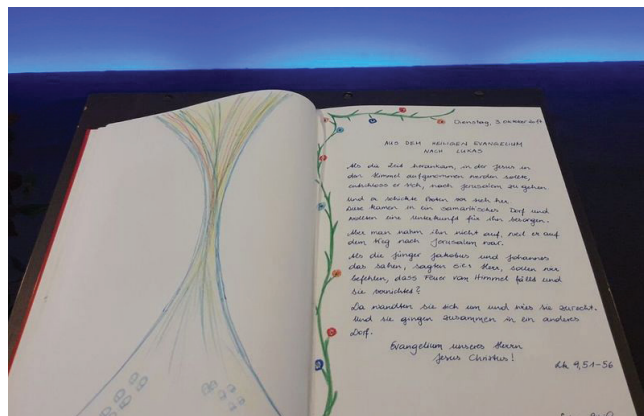 Dienstag, 3. Oktober 2017
AUS DEM HEILIGEN EVANGELIUM
NACH LUKAS
Als die Zeit herankam, in der Jesus in
den Himmel aufgenommen werden sollte,
entschloss er sich, nach Jerusalem zu gehen.
Und er schickte Boten vor sich her.
Diese kamen in ein samaritisches Dorf und
wollten eine Unterkunft für ihn besorgen.
Aber man nahm ihn nicht auf, weil er auf
dem Weg nach Jerusalem war.
Als die Jünger Jakobus und Johannes
das sahen, sagten sie: Herr, sollen wir
befehlen, dass Feuer vom Himmel fällt und
sie vernichtet?
Da wandten sie sich um und wies sie zurecht.
Und sie gingen zusammen in ein anderes
Dorf.
Evangelium unseres Herrn
Jesus Christus!
Lk 9,51-56